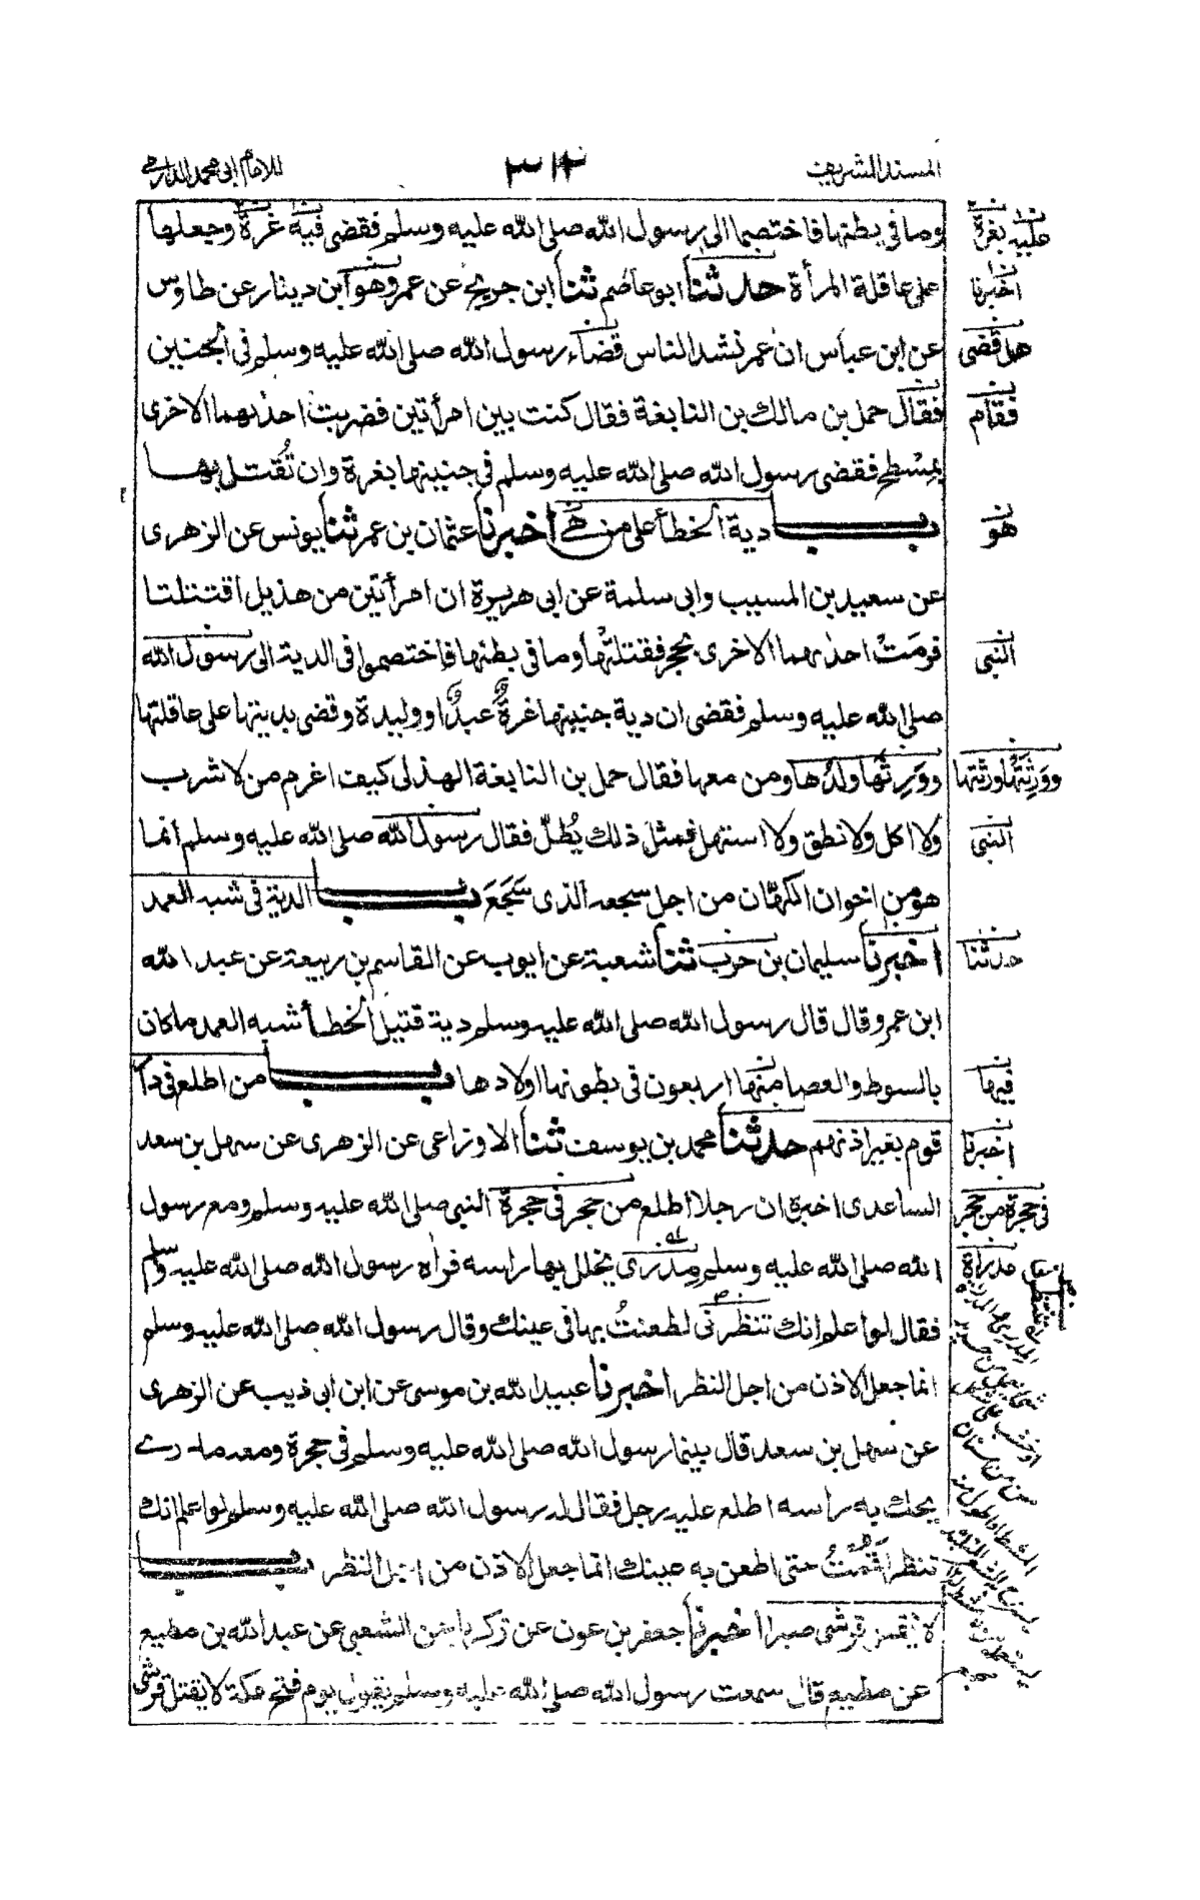 المسند الشريف
٣١٢
للامام ابى محمد الدارمى
وما فى بطنها فاختصما الى رسول الله صلى الله عليه وسلم فقضى فيه غرة وجعلها
على عاقلة المرأة حدثنا ابو عاصم ثنا ابن جريج عن عمرو هو ابن دينار عن طاوس
عن ابن عباس ان عمر نشد الناس قضاء رسول الله صلى الله عليه وسلم فى الجنين
فقال حمل بن مالك بن النابغة فقال كنت بين امرأتين فضربت احدٰهما الاخرى
بمِسْطح فقضى رسول الله صلى الله عليه وسلم فى جنينها بغرة وان تُقتل بها
باب دية الخطأ على من هى اخبرنا عثمان بن عمر ثنا يونس عن الزهرى
عن سعيد بن المسيب وابى سلمة عن ابى هريرة ان امرأتين من هذيل اقتتلتا
فرمَتْ احدٰهما الاخرى بحجر فقتلتْها وما فى بطنها فاختصموا فى الدية الى رسول الله
صلى الله عليه وسلم فقضى ان دية جنينها غرةٌ عبدٌ او وليدة وقضى بديتها على عاقلتها
ووَرِثَها ولدُها ومن معها فقال حمل بن النابغة الهذلى كيف اغرم من لا شرب
ولا اكل ولا نطق ولا استهل فمثل ذلك يُطلّ فقال رسول الله صلى الله عليه وسلم انما
هو من اخوان الكهّان من اجل سجعه الذى سَجَعَ باب الدية فى شبه العمد
اخبرنا سليمان بن حرب ثنا شعبة عن ايوب عن القاسم بن ربيعة عن عبد الله
ابن عمرو قال قال رسول الله صلى الله عليه وسلم دية قتيل الخطأ شبه العمد ما كان
بالسوط والعصا منها اربعون فى بطونها اولادها باب من اطلع فى دار
قوم بغير اذنهم حدثنا محمد بن يوسف ثنا الاوزاعى عن الزهرى عن سهل بن سعد
الساعدى اخبره ان رجلا اطلع من حجر فى حجرة النبى صلى الله عليه وسلم ومع رسول
الله صلى الله عليه وسلم مِدْرى يخلل بها راسه فراٰه رسول الله صلى الله عليه وسلم
فقال لو اعلم انك تنظرنى لطعنتُ بها فى عينك وقال رسول الله صلى الله عليه وسلم
انما جعل الاذن من اجل النظر اخبرنا عبيد الله بن موسى عن ابن ابى ذيب عن الزهرى
عن سهل بن سعد قال بينما رسول الله صلى الله عليه وسلم فى حجرة ومعه مدرى
يحك به راسه اطلع عليه رجل فقال له رسول الله صلى الله عليه وسلم لو اعلم انك
تنظر لقمتُ حتى اطعن به عينك انما جعل الاذن من اجل النظر باب
لا يقتل قرشى صبرا اخبرنا جعفر بن عون عن زكريا عن الشعبى عن عبد الله بن مطيع
عن مطيع قال سمعت رسول الله صلى الله عليه وسلم يقول يوم فتح مكة لا يقتل قرشى
عليه بغرة
اخبرنا
هل قضى
فقام
هو
النبى
ووَرِثَتْها ورثتها
النبى
حدثنا
فيها
اخبرنا
فى حجرة من حجر
مدراة
تنتظر